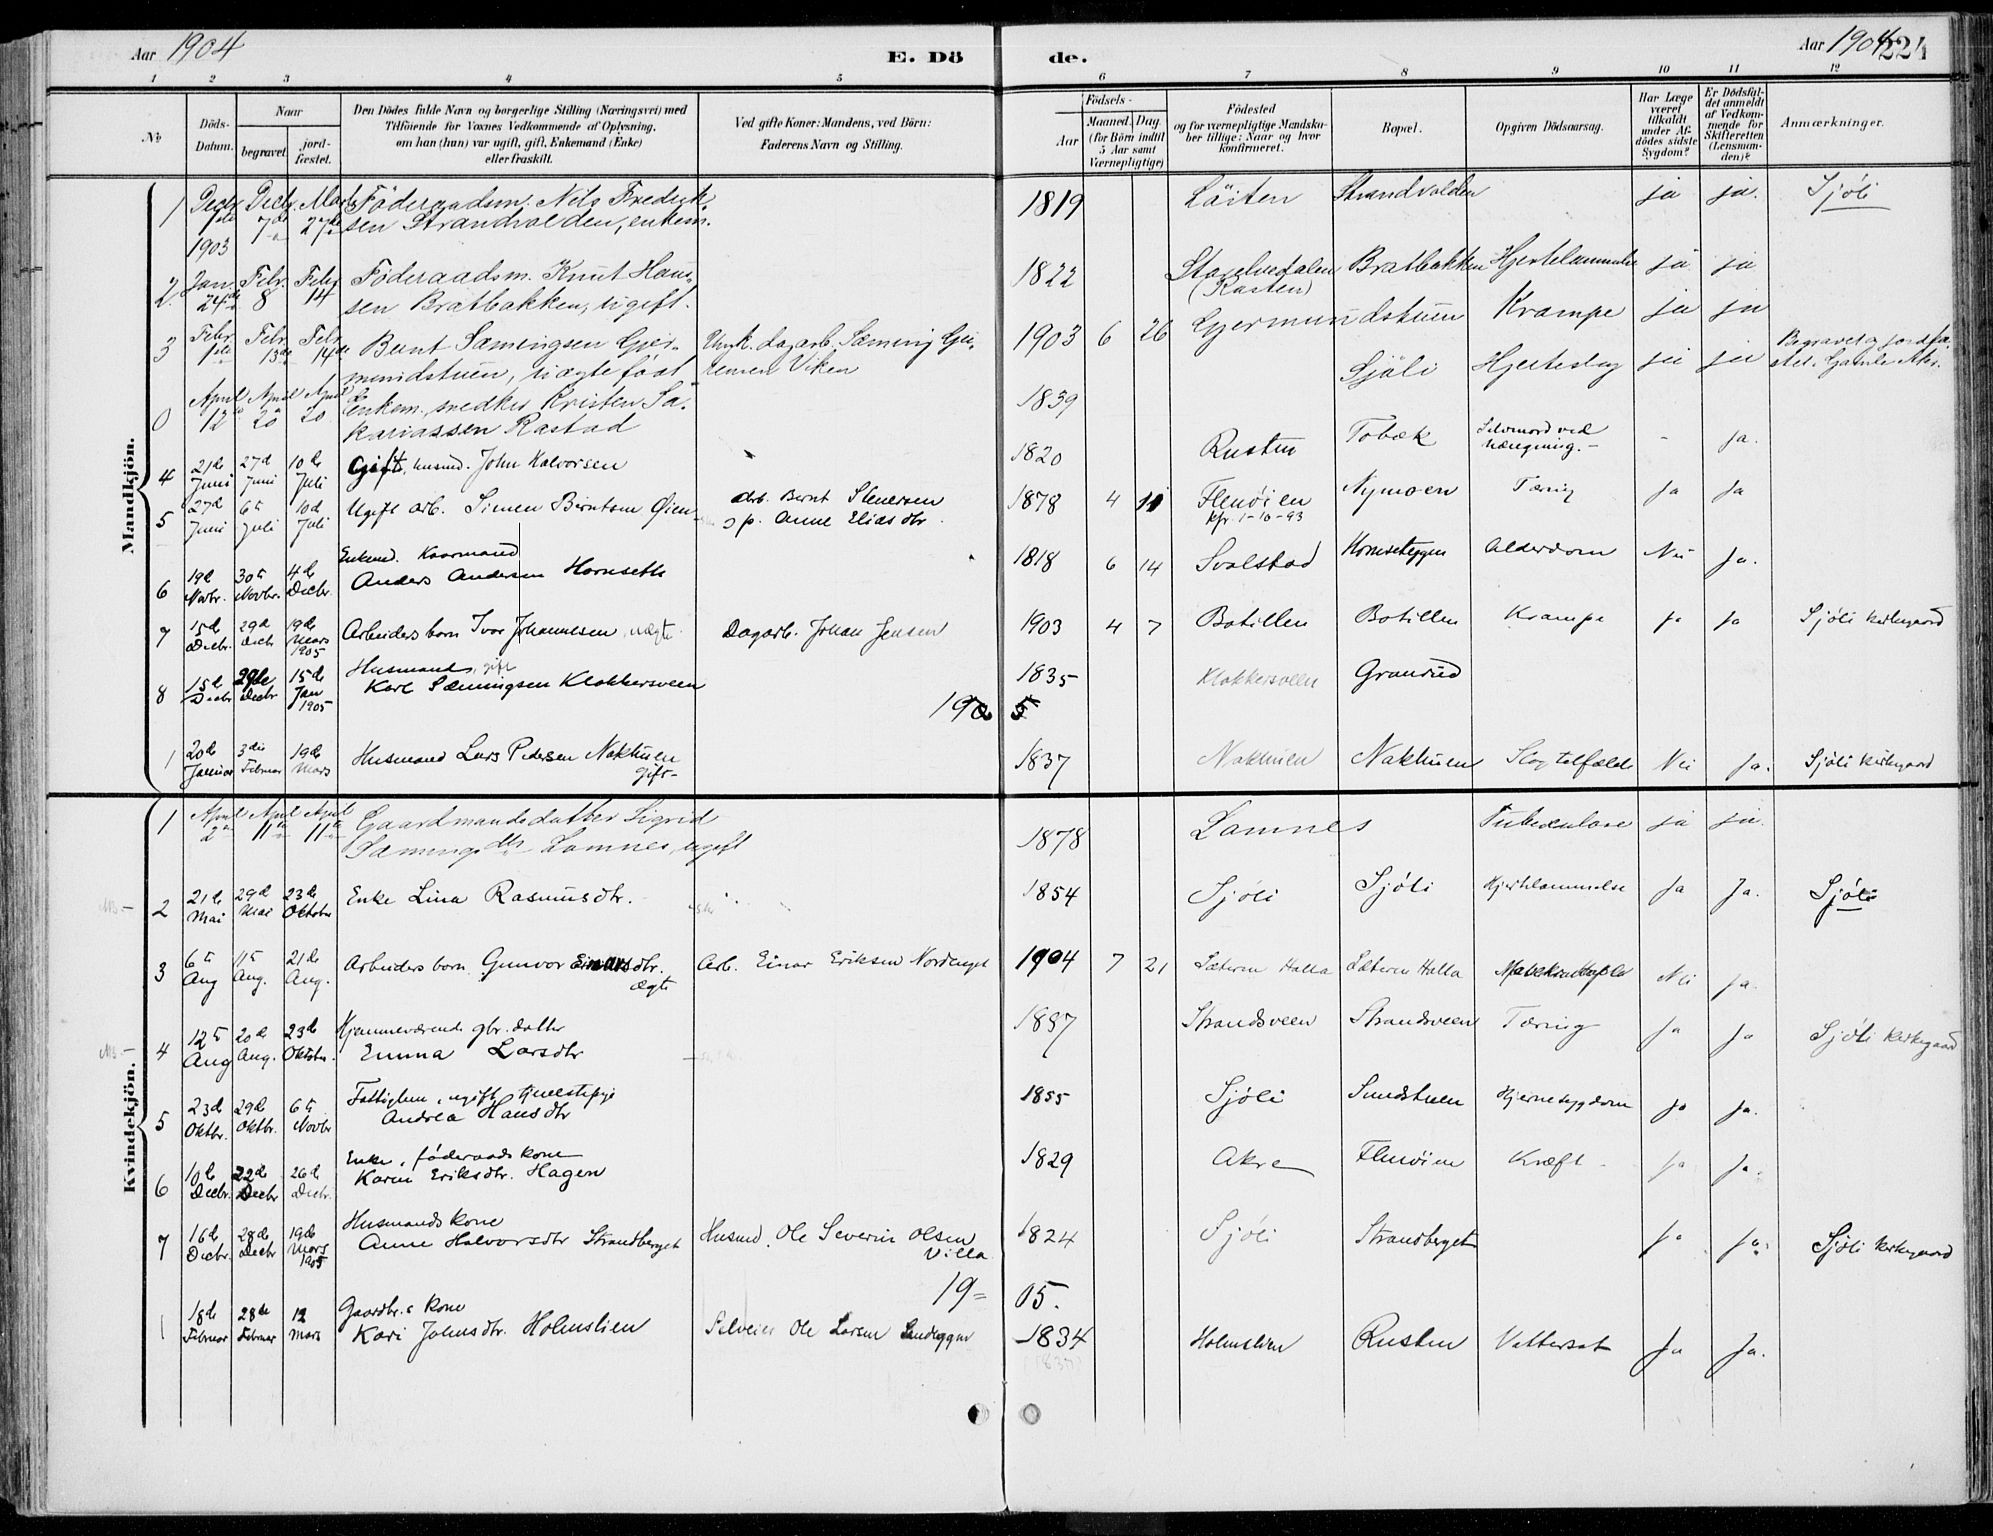 Aar 1904
E. Dö de.
Aar 1904 224
1 2 3 4 5 6 7 8 9 10 11 12
No
Döds-Datum.
Naar
begravet.
jord-fæstet.
Den Dödes fulde Navn og borgerlige Stilling (Næringsvei) med
Tilföiende for Voxnes Vedkommende af Oplysning,
om han (hun) var ugift, gift, Enkemand (Enke)
eller fraskilt.
Ved gifte Koner: Mandens, ved Börn:
Faderens Navn og Stilling.
Födsels-
Aar
Maaned. Dag.
(for Börn indtil
5 Aar samt
Værnepligtige)
Födested
og for værnepligtige Mandska-
ber tillige: Naar og hvor
konfirmeret.
Bopæl.
Opgiven Dödsaarsag.
Har Læge
været
tilkaldt
under Af-
dödes sidste
Sygdom?
Er Dödsfal-
det anmeldt
af Vedkom-
mende for
Skifteretten
(Lensman-
den)?
Anmærkninger.
Mandkjön.
1 Decbr. 1ste 1903 Decbr. 7de Marts 27de Föderaadsm. Nils Fredrik-
sen Strandvolden, enkem. 1819 Löiten Strandvolden ja ja. Sjöli
2 Jan. 24de Febr. 8 Febr. 14 Föderaadsm. Knut Han-
sen Bratbakken, ugift. 1822 Storelvedalen (Rasten) Bratbakken Hjertelammelse ja ja
3 Febr. 1ste Febr. 13de Febr. 14de Bernt Sæmingsen Gjer-
mundstuen, uægte født Ungk. dagarb. Sæming Gu-
1903 6 26 Gjermundstuen Krampe ja ja Begravet og jordfæ-
stet. Gamle Akr.
0 April 12te April 20 April 20 Enkem. snedker Kristen Sa-
kariassen Rastad 1839 Sjöli Hjerteslag ja ja
4 21de Juni 27d Juni 10de Juli Gift, husmd. John Halvorsen 1820 Rusten Tobæk Selvmord ved hængning. - - ja.
5 27d Juni 6te Juli 10d Juli Ugift arb. Simen Berntsen Øien arb. Bernt Stenersen
og Anne Eliasdtr. 1878 4 11 Flenöien kfr. 1-10-93 Nymoen Tæring ja ja
6 19d Novbr. 30te Novbr. 4de Decbr. Enkemd. Kaarmand
Anders Andersen Hornseth 1818 6 14 Svalstad Hornseteggen Alderdom Nei ja.
7 15d Decbr. 29d Decbr 19de Mars 1905 Arbeiders barn Ivar Johannesen, uægte. Dagarb. Johan Jensen 1903 4 7 Botillen Botillen Krampe ja ja Sjöli kirkegaard
8 15d Decbr 29de Decbr 15de Jan 1905 Husmand, gift
Karl Sæmingsen Klokkersveen 1835 Klokkersveen Granrud
1905
1 20de Januar 3die Februar 19de Mars Husmand Lars Pedersen Nakhuen
gift- 1837 Nakhuen Nakhuen Slagtilfælde Nei ja. Sjöli kirkegaard
Kvindekjön.
1 April 2 April 11te April 11te Gaardmandsdatter Sigrid
Sæmingsdtr Lomnes, ugift 1878 Lomnes Tuberkulose ja ja.
2 21de Mai 29d Mai 23de Oktober Enke Lina Rasmusdtr. 1854 Sjöli Sjöli Hjertelammelse ja Ja. Sjöli
3 6te Aug 11te Aug. 21de Aug. Arbeiders barn Gunvor Einarsdtr.
ægte Arb. Einar Eriksen Nordenget 1904 7 21 Sæteren Halla Sæteren Halla Nei ja
4 12te Aug 20de Aug. 23de Oktober. Hjemmeværende gbr. datter
Emma Larsdtr 1887 Strandsveen Strandsveen Tæring ja ja Sjöli kirkegaard
5 23d Oktbr. 29d Oktbr. 6te Novbr Fattiglem, ugift, tjenestepige
Andrea Hansdtr 1855 Sjöli Sundstuen Hjernesygdom ja ja.
6 10de Decbr. 22de Decbr 26de Decbr. Enke, föderaadskone
Karen Eriksdtr. Hagen 1829 Akre Flenöien Kræft ja ja.
7 16de Decbr. 28de Decbr 19de Mars 1905 Husmands kone
Anne Halvorsdtr Strandberget Husmd. Ole Severin Olsen
Villa 1824 Sjöli Strandberget ja ja. Sjöli kirkegaard
19= 05.
1 18de Februar 28de Februar 12 Mars Gaardbr.s kone
Kari Johnsdtr. Holmslien Selveier Ole Larsen 1834 Holmslien Rusten Vattersot ja Ja.